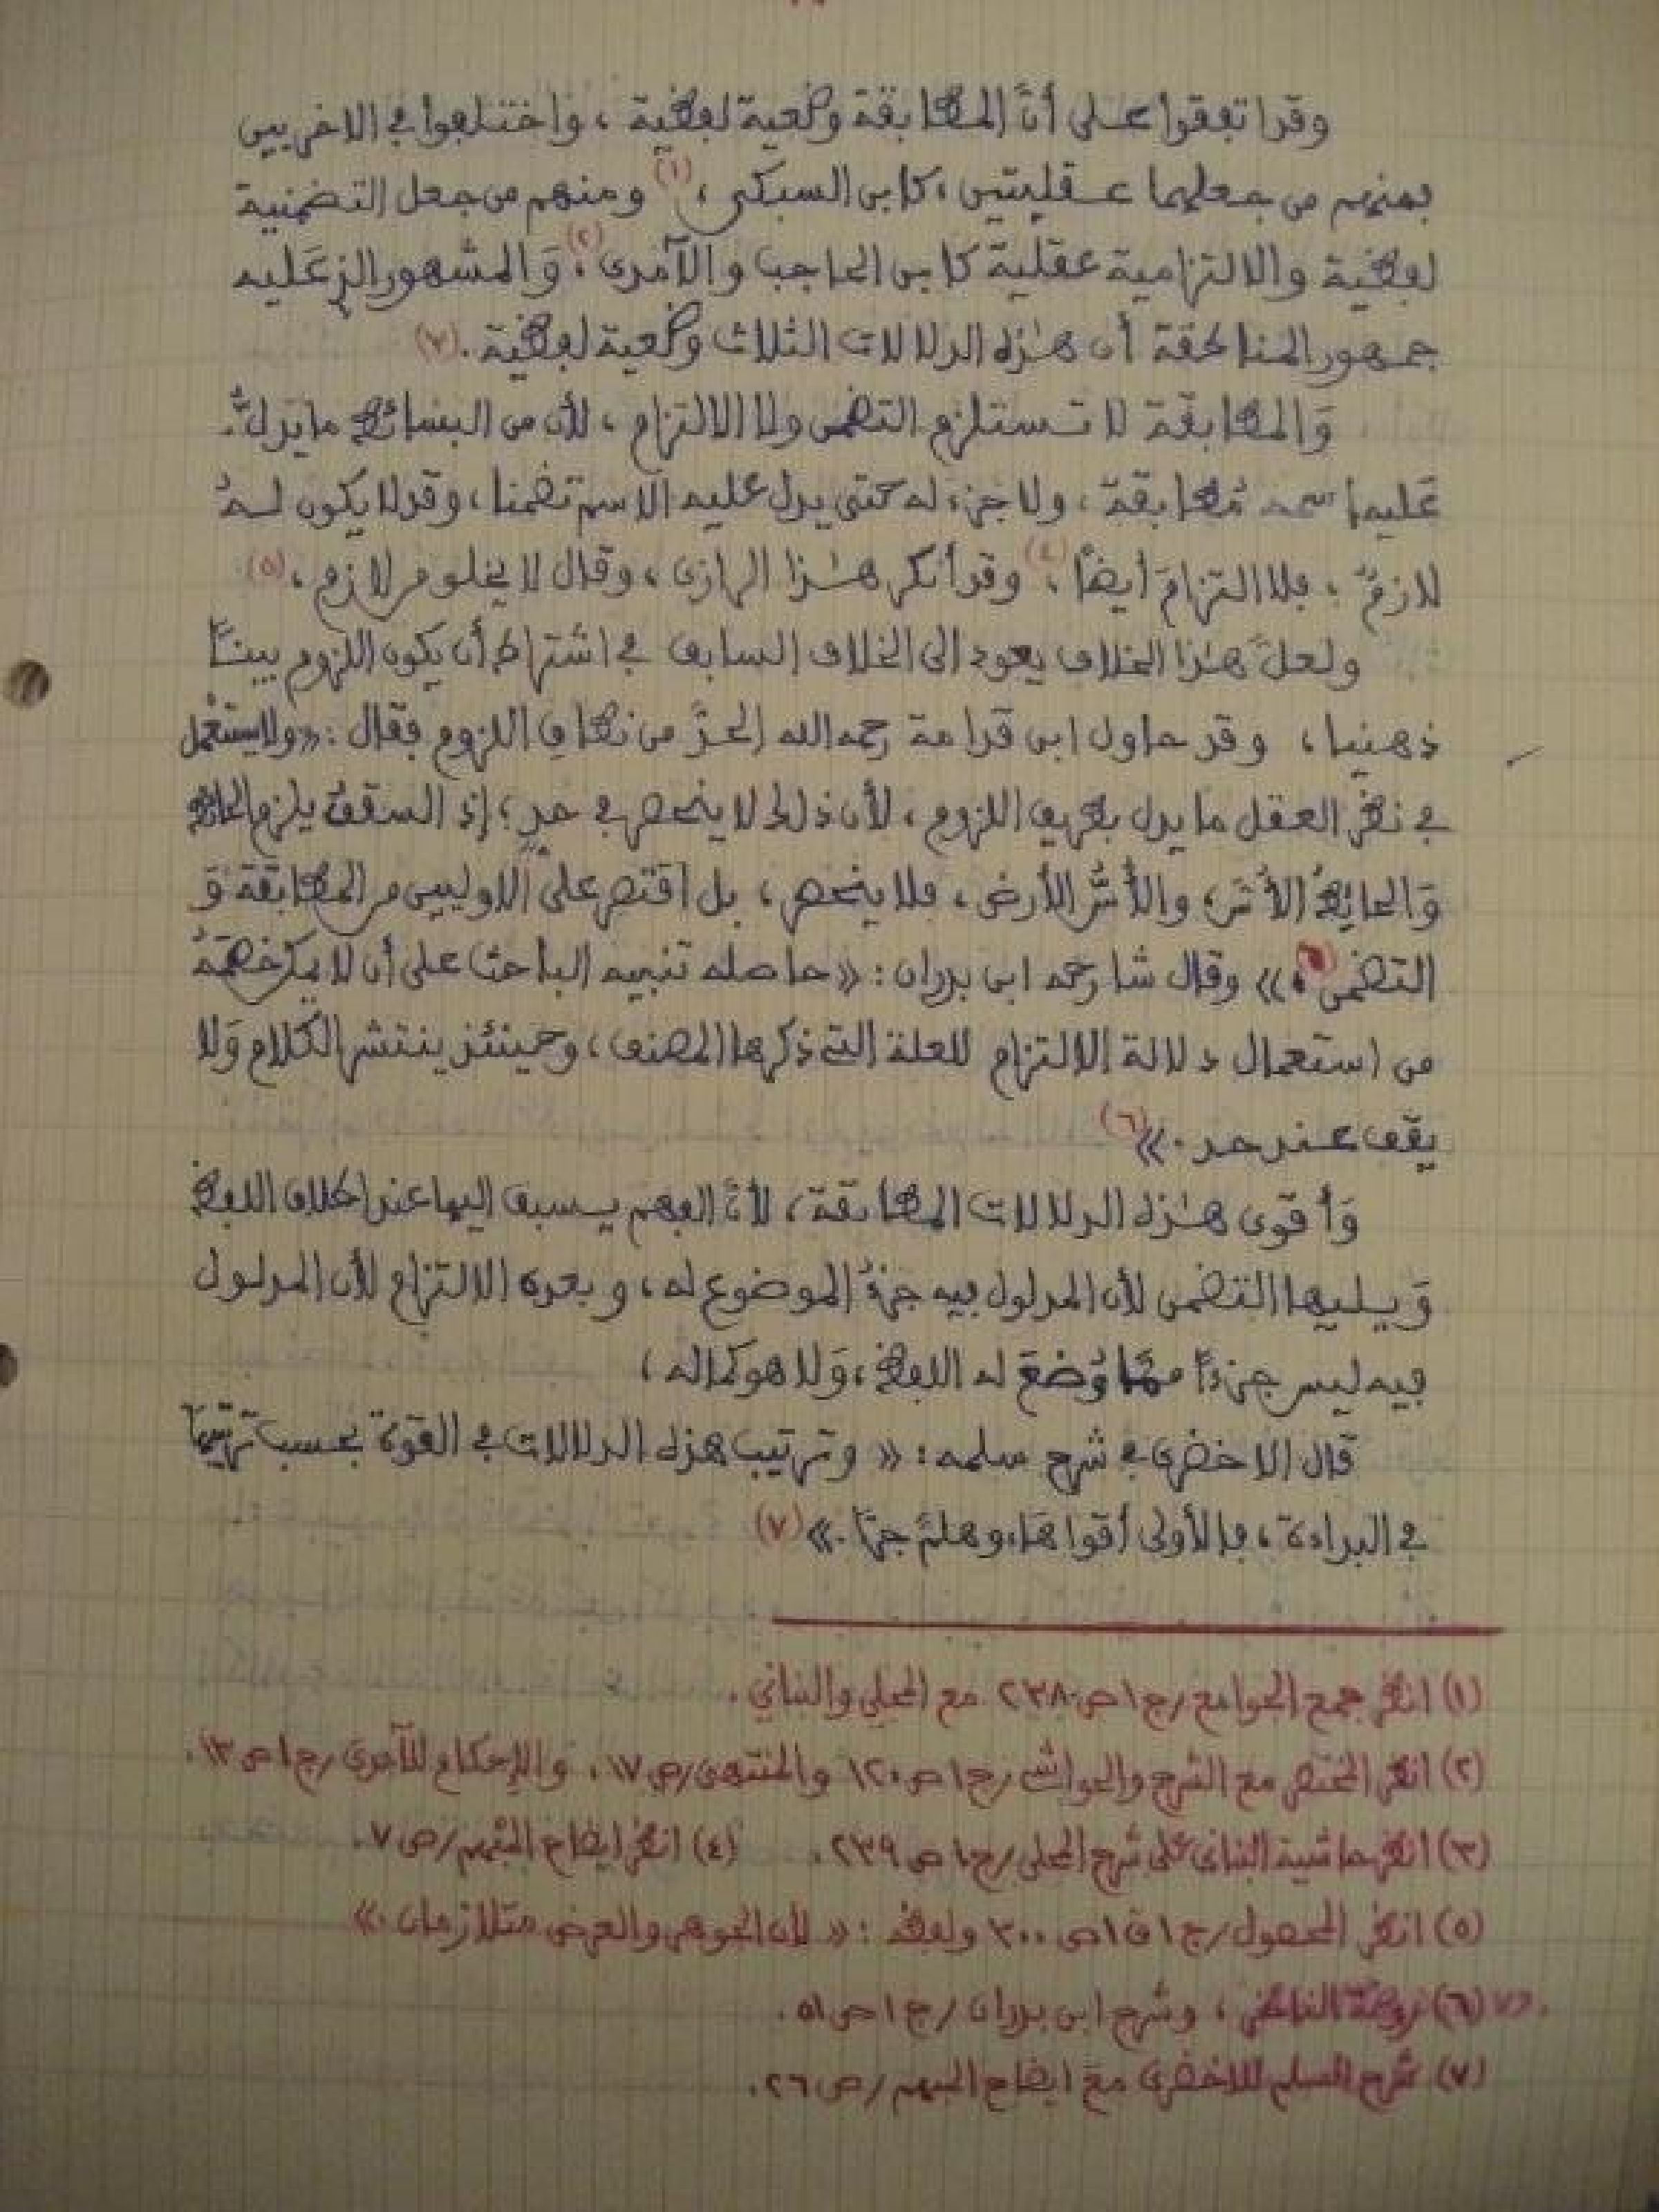 وقد اتفقوا على أنَّ المطابقة وضعية لفظية ، واختلفوا في الاخريين
فمنهم من جعلهما عقليتين ، كابن السبكي ، (١) ومنهم من جعل التضمنية
لفظية والالتزامية عقلية كابن الحاجب والآمدى ، (٢) وَالمشهور الذي عَليه
جمهور المناطقة أن هـٰذه الدلالات الثلاث وضعية لفظية . (٣)
وَالمطابقة لا تستلزم التضمن ولا الالتزام ، لأن من البسائط ما يدلُّ
عَليها اسمه مُطابقة ، ولا جزء له حتى يدل عليه الاسم تضمنا ، وقد لا يكون لــهُ
لازمٌ ، فلا التزامَ أيضًا ، (٤) وقد أنكر هـٰذا الرازى ، وقال لا يخلو من لازم ، (٥)
ولعلَّ هـٰذا الخلاف يعود الى الخلاف السابق في اشتراط أن يكون اللزوم بينــًا
ذهنيا ، وقد حاول ابن قدامة رحمه الله الحدَّ من نطاق اللزوم فقال : «ولا يستعْمل
في نظر العقل ما يدل بطريق اللزوم ، لأن ذلك لا ينحصر في حدٍ ؛ إذ السقفُ يلزم الحائط
وَالحائطُ الأُسَّ ، والأُسُّ الأرض ، فلا ينحصر ، بل اقتصر على الاوليين من المطابقة وَ
التضمن .» وقال شارحه ابن بدران : «حاصله تنبيه الباحث على أن لا يمكن خصمَهُ
من استعمال دلالة الالتزام للعلة التي ذكرها المصنف ، وحينئذ ينتشر الكلام وَلا
يقف عند حد .» (٦)
وَأقوى هـٰذه الدلالات المطابقة ، لأنَّ الفهم يسبق اليها عند اطلاق اللفظ
وَيليها التضمن لأن المدلول فيه جزءُ الموضوع له ، وبعده الالتزام لأن المدلول
فيه ليس جزءًا ممَّا وُضعَ له اللفظ ، وَلا هو كماله ،
قال الاخضرى في شرح سلمه : « وترتيب هذه الدلالات في القوة بحسب ترتيبها
في البداءة ، فالأولى أقواها ، وهلمَّ جرّا .» (٧)
(١) انظر جمع الجوامع / ج ١ ص ٢٣٨ . مع المحلي والبناني .
(٢) انظر المختصر مع الشرح والحواشي / ج ١ ص ١٢٠ والمنتهى / ص ١٧ . والإحكام للآمدى / ج ١ ص ١٣ .
(٣) انظر حاشية البناني على شرح المحلى / ج ١ ص ٢٣٩ . (٤) انظر ايضاح المبهم / ص ٧ .
(٥) انظر المحصول / ج ١ ق ١ ص ٣٠٠ ولفظه : « لأن الجوهر والعرض متلازمان .»
(٦) روضة الناظر ، وشرح ابن بدران / ج ١ ص ٥١ .
(٧) شرح السلم للاخضرى مع ايضاح المبهم / ص ٢٦ .